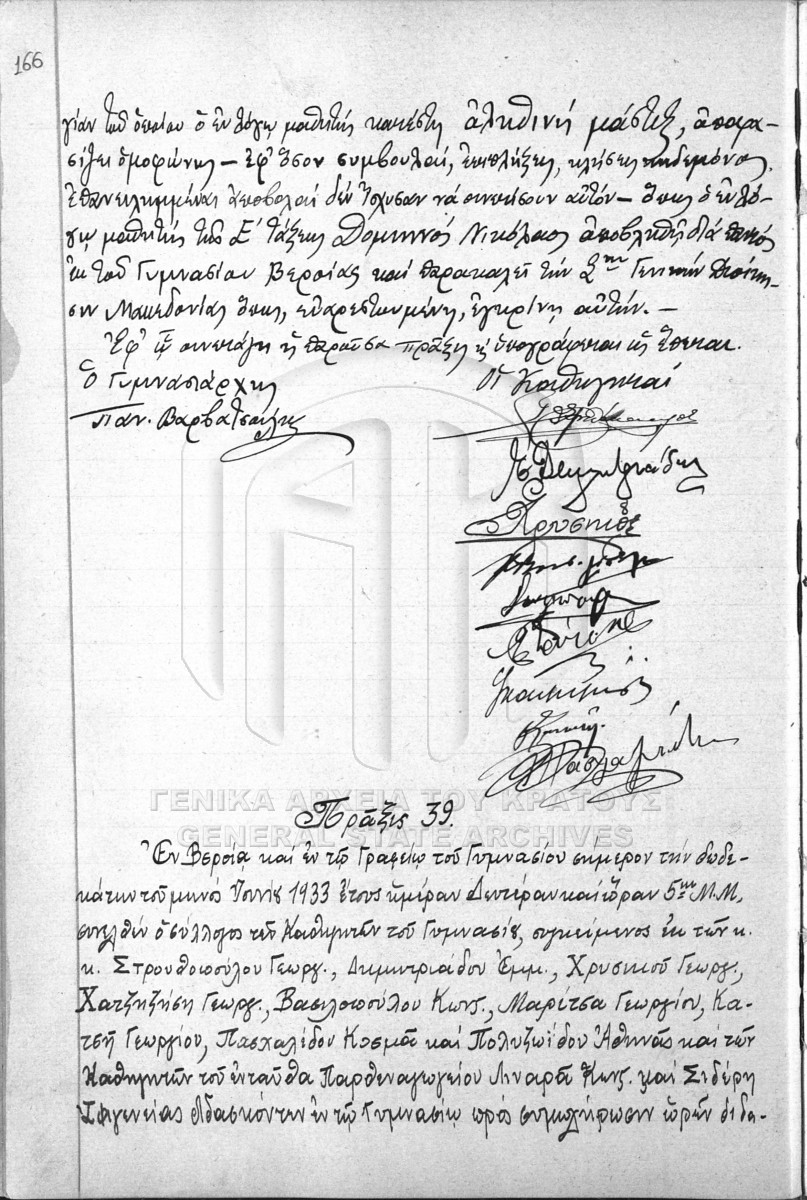 166
γίαν τοῦ ὁποίου ὁ ἐν λόγῳ μαθητὴς κατέστη ἀληθινὴ μάστιξ, ἀποφα-
σίζει ὁμοφώνως – ἐφ' ὅσον συμβουλαί, ἐπιπλήξεις, κλήσεις κηδεμόνος,
ἐπανειλημμέναι ἀποβολαὶ δὲν ἴσχυσαν νὰ σινετίσουν αὐτόν – ὅπως ὁ ἐν λό-
γῳ μαθητὴς τῆς Εʹ τάξεως Δομηνὸς Νικόλαος ἀποβληθῇ διὰ παντὸς
ἐκ τοῦ Γυμνασίου Βεροίας καὶ παρακαλεῖ τὴν Σ. Γενικὴν Διοίκη-
σιν Μακεδονίας ὅπως, εὐαρεστουμένη, ἐγκρίνῃ αὐτήν. –
Ἐφ' ᾧ συνετάγη ἡ παροῦσα πρᾶξις κ ὑπογράφεται ὡς ἕπεται.
Ὁ Γυμνασιάρχης
Οἱ Καθηγηταί
Παν. Βαρβατσούλης
Ἐ. Δημητριάδης
Χρυσικὸς
Πασχαλίδης
ΓΕΝΙΚΑ ΑΡΧΕΙΑ ΤΟΥ ΚΡΑΤΟΥΣ
Πρᾶξις 39.
GENERAL STATE ARCHIVES
Ἐν Βεροίᾳ καὶ ἐν τῷ Γραφείῳ τοῦ Γυμνασίου σήμερον τὴν δωδε-
κάτην τοῦ μηνὸς Ἰουνίου 1933 ἔτους ἡμέραν Δευτέραν καὶ ὥραν 5ην Μ.Μ,
συνελθὼν ὁ σύλλογος τῶν Καθηγητῶν τοῦ Γυμνασίου, συγκείμενος ἐκ τῶν κ.
κ. Στρουθοπούλου Γεωργ., Δημητριάδου Ἐμμ., Χρυσικοῦ Γεωργ.,
Χατζηζήση Γεωργ., Βασιλοπούλου Κωνς., Μαρίτσα Γεωργίου, Κα-
τσῆ Γεωργίου, Πασχαλίδου Κοσμᾶ καὶ Πολυζωΐδου Ἀθηνᾶς καὶ τῶν
Καθηγητῶν τοῦ ἐνταῦθα Παρθεναγωγείου Λιναρᾶ Κωνς. καὶ Σιδέρη
Ἰφιγενείας διδασκόντων ἐν τῷ Γυμνασίῳ πρὸς συμπλήρωσιν ὡρῶν διδα-